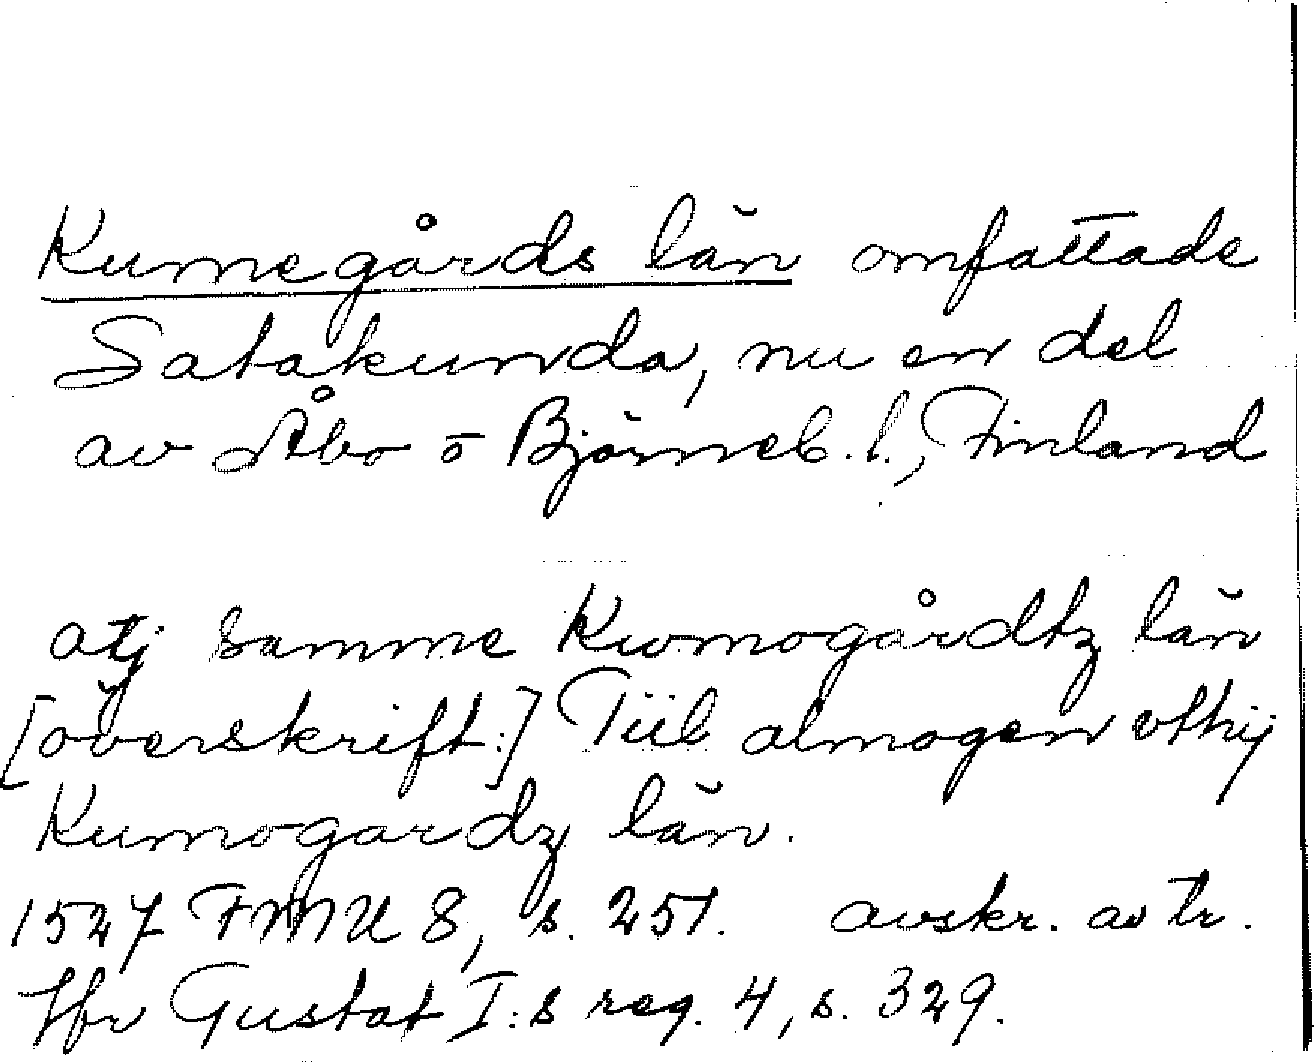 Kumegårds län omfattade
Satakunda, nu en del
av Åbo o Björneb. l., Finland
atj samme Kwmogårdtz län
[överskrift:] Tiil almogen vthj
Kumogardz län.
1527 FMU 8, s. 251. avskr. av tr.
Jfr Gustaf I:s reg. 4, s. 329.